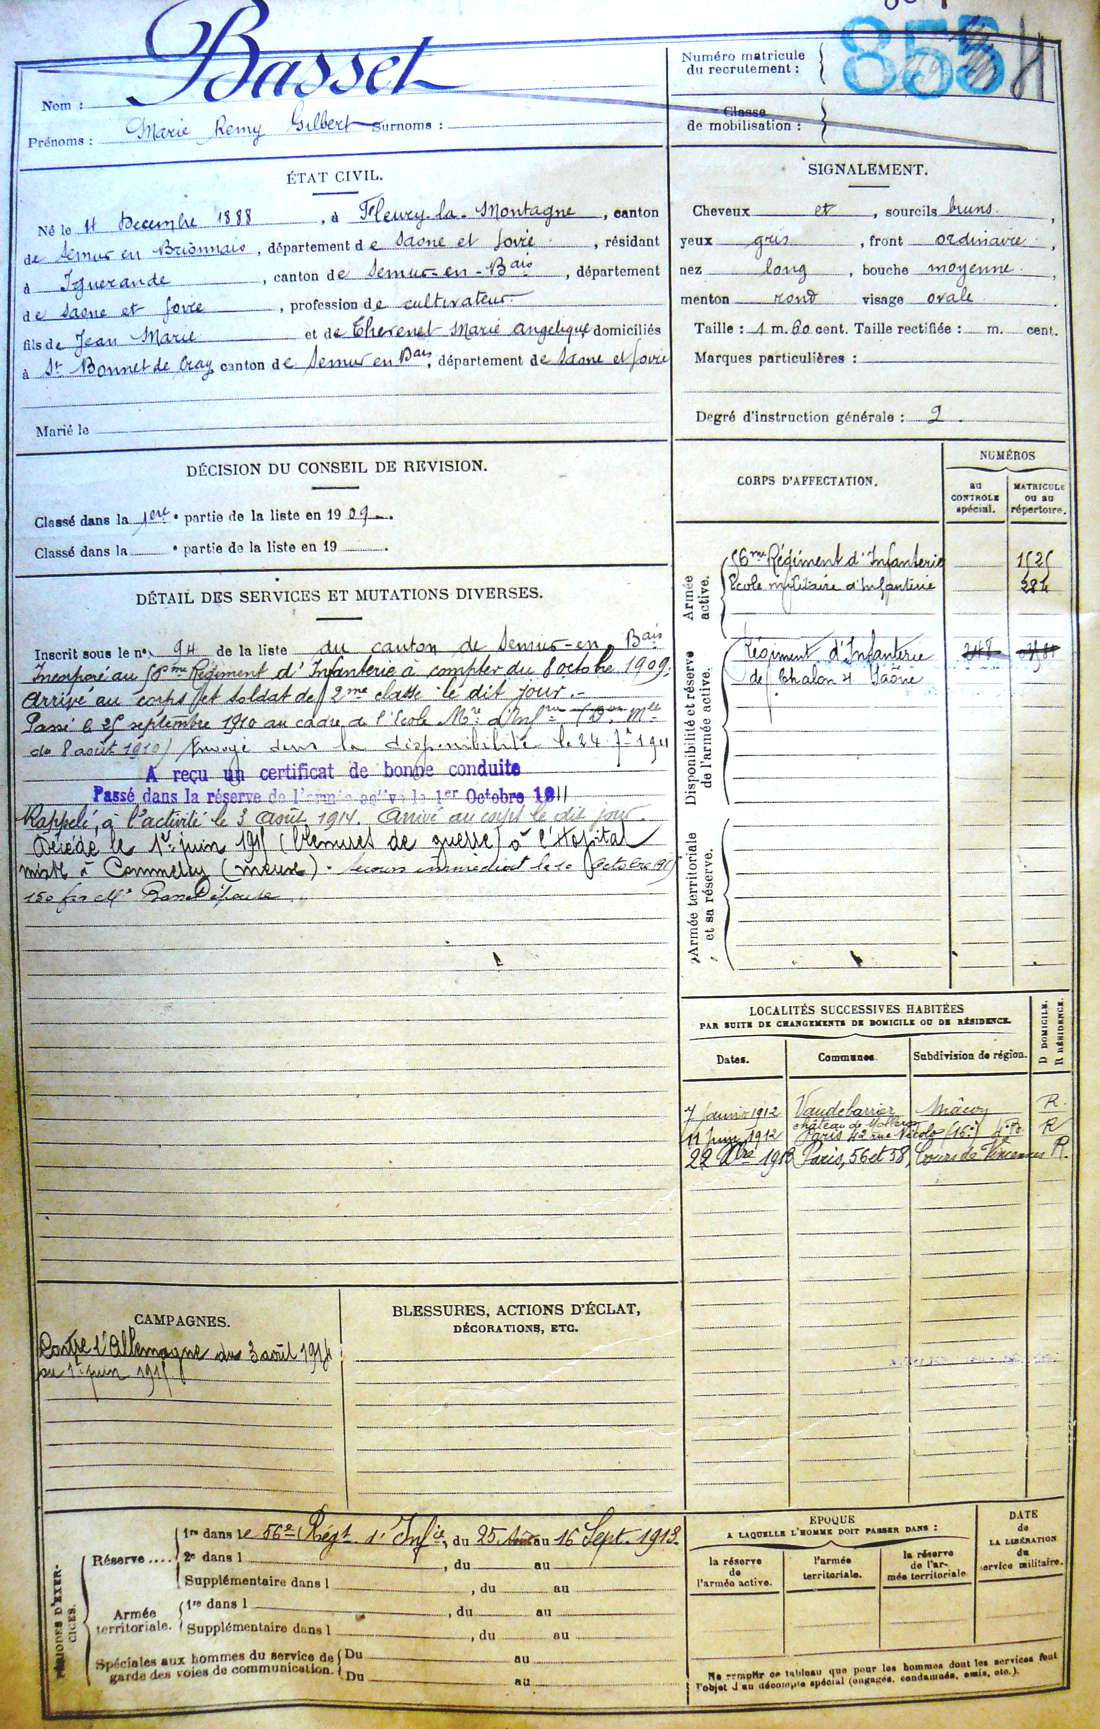 Basset
Nom :
Prénoms : Marie Remy Gilbert Surnoms :
Numéro matricule
du recrutement : 855
Classe
de mobilisation :
ÉTAT CIVIL.
Né le 11 Decembre 1888, à Fleury-la-Montagne, canton
de Semur en Brionnais, département de Saone et Loire, résidant
à Iguerande, canton de Semur-en-Bais, département
de Saone et Loire, profession de cultivateur
fils de Jean Marie et de Therenet Marie Angelique, domiciliés
à St Bonnet de Cray, canton de Semur en Bais, département de Saone et Loire
Marié le
SIGNALEMENT.
Cheveux et, sourcils bruns,
yeux gris, front ordinaire,
nez long, bouche moyenne,
menton rond visage ovale.
Taille : 1 m. 60 cent. Taille rectifiée : m. cent.
Marques particulières :
Degré d'instruction générale : 2.
DÉCISION DU CONSEIL DE REVISION.
Classé dans la 1ere partie de la liste en 1909.
Classé dans la e partie de la liste en 19 .
DÉTAIL DES SERVICES ET MUTATIONS DIVERSES.
Inscrit sous le no 94 de la liste du canton de Semur-en Bais
Incorporé au 56me Régiment d'Infanterie à compter du 8 octobre 1909.
Arrivé au corps et soldat de 2me classe le dit jour.-
Passé le 25 septembre 1910 au cadre de l'Ecole Mre d'Infrie (D. Mlle
du 8 août 1910) Envoyé dans la disponibilité le 24 7bre 1911
A reçu un certificat de bonne conduite
Passé dans la réserve de l'armée active le 1er Octobre 1911
Rappelé, à l'activité le 3 août 1914. Arrivé au corps le dit jour.
Décédé le 1er juin 1915 (blessures de guerre) à l'Hopital
mixte à Commercy (meuse). Secours immédiat le 10 Octobre 1915
150 frs Me Basset épouse
CORPS D'AFFECTATION.
NUMÉROS
au
CONTROLE
spécial.
MATRICULE
ou au
répertoire.
Armée
active.
56me Régiment d'Infanterie 1525
Ecole militaire d'Infanterie 284
Disponibilité et réserve
de l'armée active.
Régiment d'Infanterie 348
de Chalon s/ Saône
Armée territoriale
et sa réserve.
LOCALITÉS SUCCESSIVES HABITÉES
PAR SUITE DE CHANGEMENTS DE DOMICILE OU DE RÉSIDENCE.
D DOMICILE.
R RÉSIDENCE.
Dates. Communes. Subdivision de région.
7 Janvier 1912 Vaudebarrier Mâcon R.
château de
11 Juin 1912 Paris 42 rue Nicolo (16e) R
22 Xbre 1913 Paris, 56 et 58, Cours de Vincennes R.
CAMPAGNES.
Contre l'Allemagne du 3 août 1914
au 1er juin 1915
BLESSURES, ACTIONS D'ÉCLAT,
DÉCORATIONS, ETC.
PÉRIODES D'EXER-
CICES.
Réserve....
1re dans le 56e Régt d'Infie, du 25 Août au 16 Sept. 1913.
2e dans l , du au
Supplémentaire dans l , du au
Armée
territoriale.
1re dans l , du au
Supplémentaire dans l , du au
Spéciales aux hommes du service de
garde des voies de communication.
Du au
Du au
ÉPOQUE
A LAQUELLE L'HOMME DOIT PASSER DANS :
la réserve
de
l'armée active.
l'armée
territoriale.
la réserve
de l'ar-
mée territoriale.
DATE
de
LA LIBÉRATION
du
service militaire.
Ne remplir ce tableau que pour les hommes dont les services font
l'objet d'un décompte spécial (engagés, condamnés, omis, etc.).